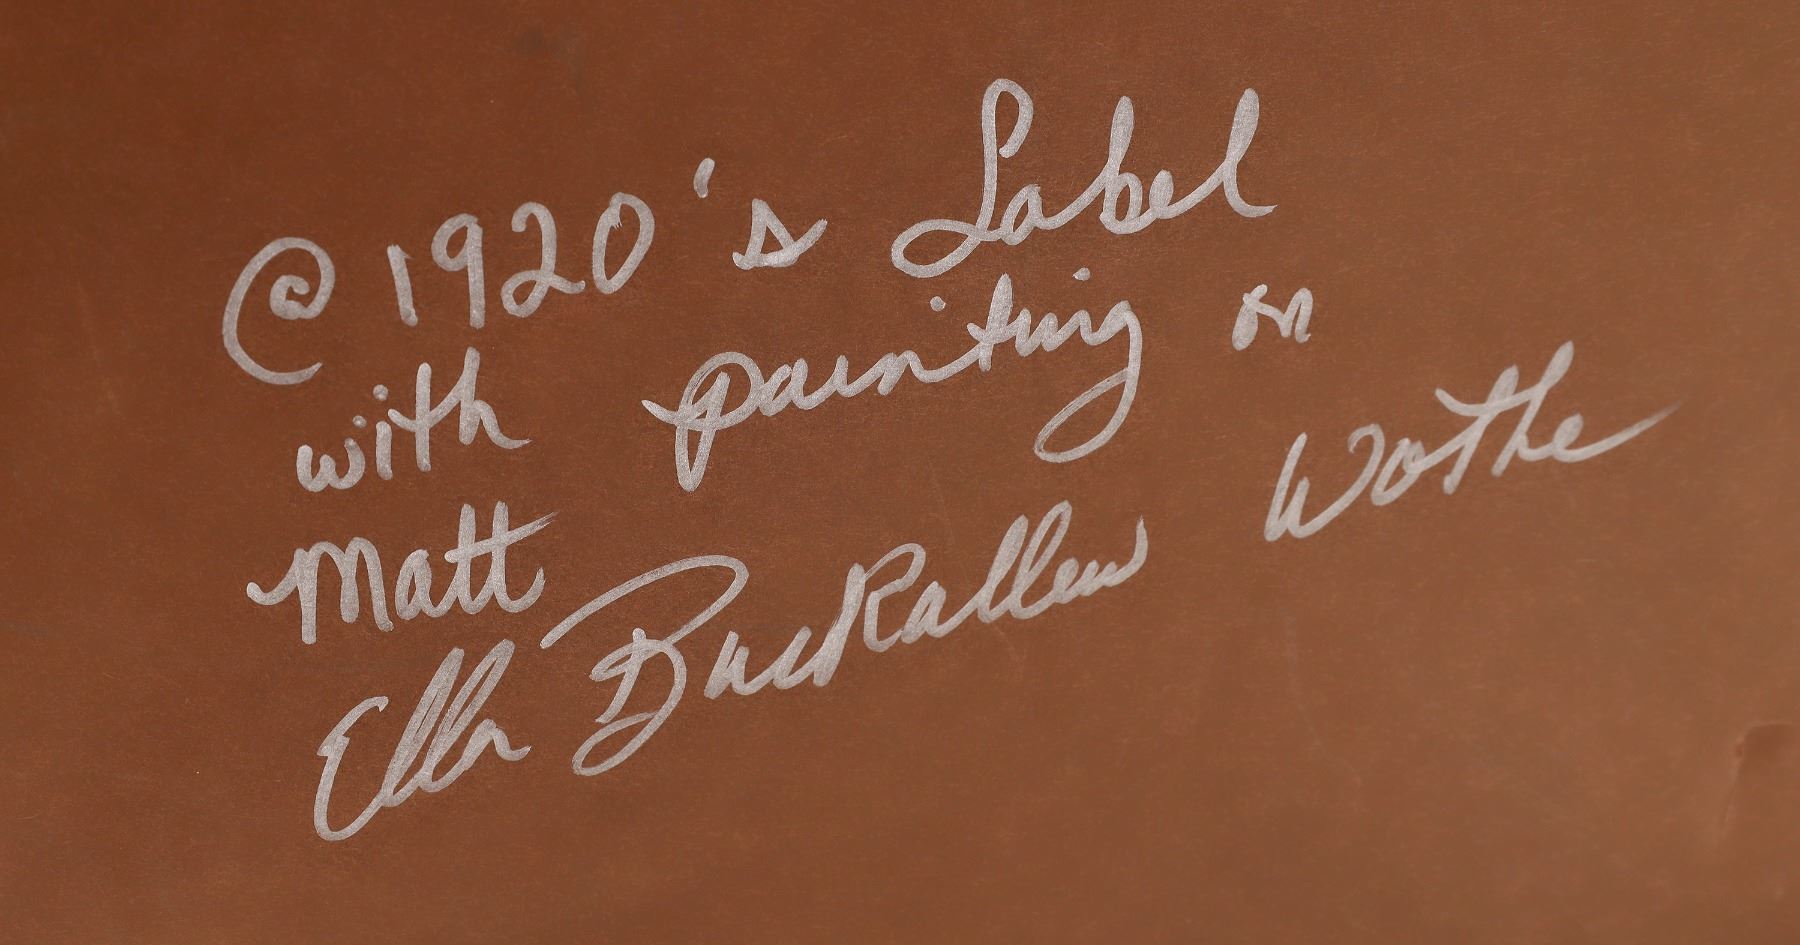 @ 1920's Label
with painting on
Matt
Ella Buckallew Wothe